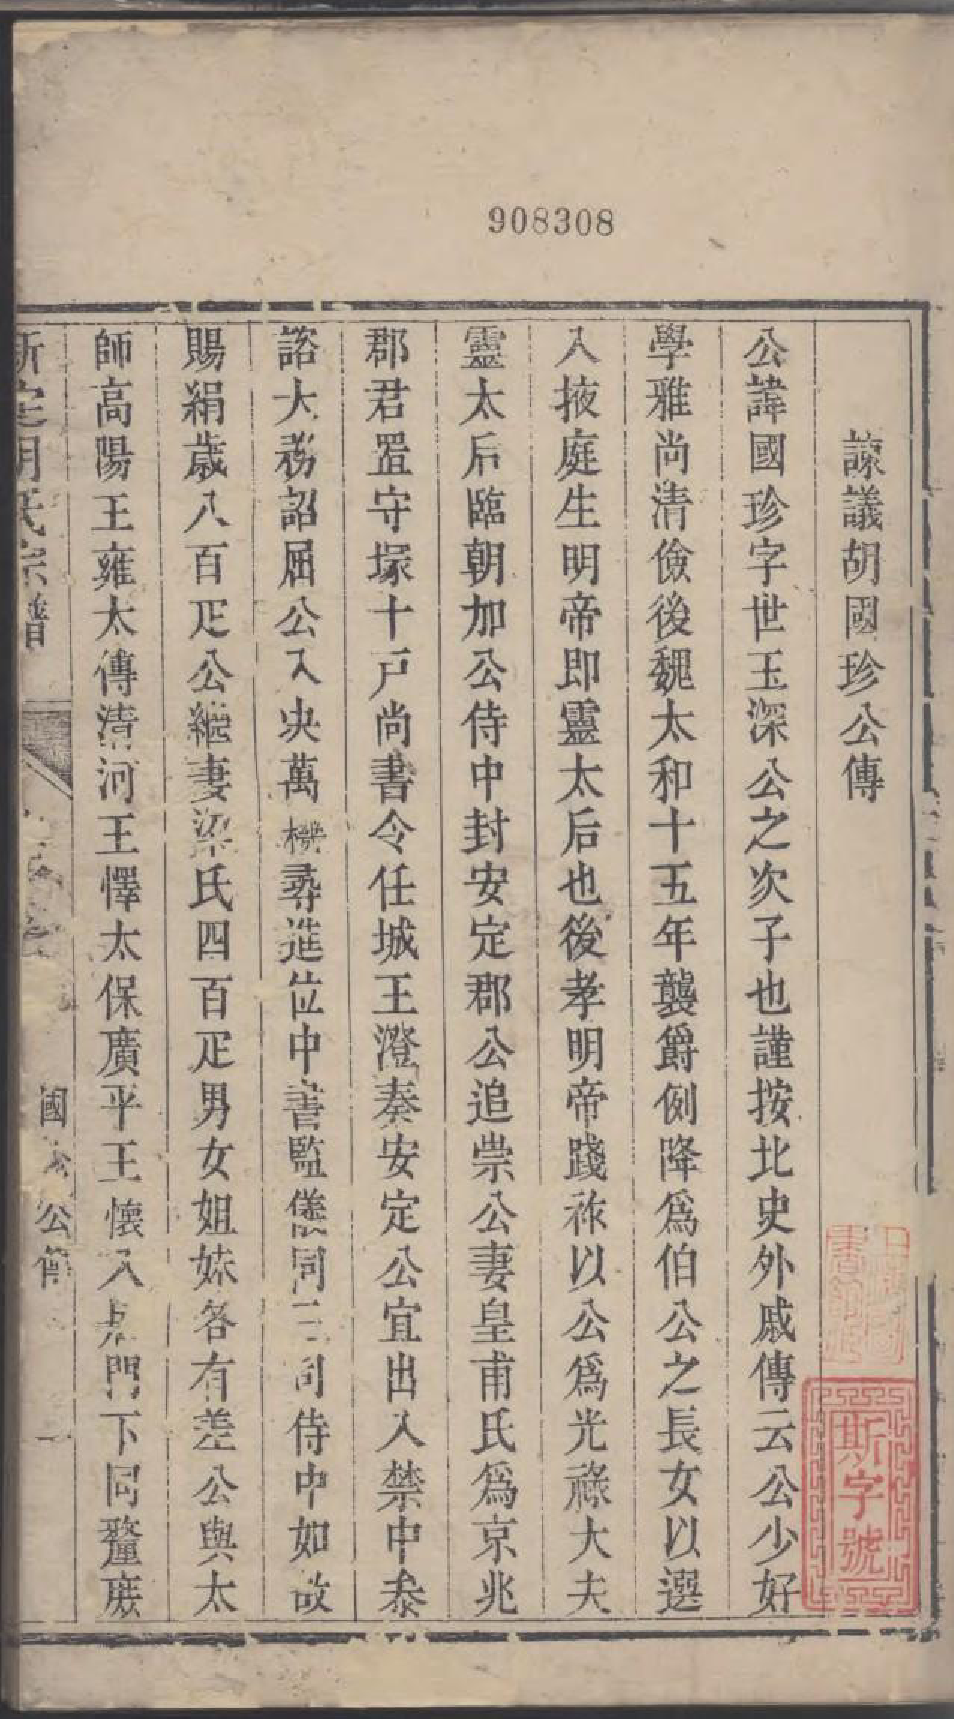 908308
諫議胡國珍公傳
公諱國珍字世玉深公之次子也謹按北史外戚傳云公少好
學雅尚清儉後魏太和十五年襲爵例降爲伯公之長女以選
入掖庭生明帝即靈太后也後孝明帝踐祚以公爲光祿大夫
靈太后臨朝加公侍中封安定郡公追崇公妻皇甫氏爲京兆
郡君置守塚十戸尚書令任城王澄奏安定公宜出入禁中叅
諮大務詔屈公入決萬機尋進位中書監儀同三司侍中如故
賜絹歲八百疋公繼妻梁氏四百疋男女姐妹各有差公與太
師高陽王雍太傅清河王懌太保廣平王懷入居門下同釐庶
新定胡氏宗譜
國公傳
斯字號